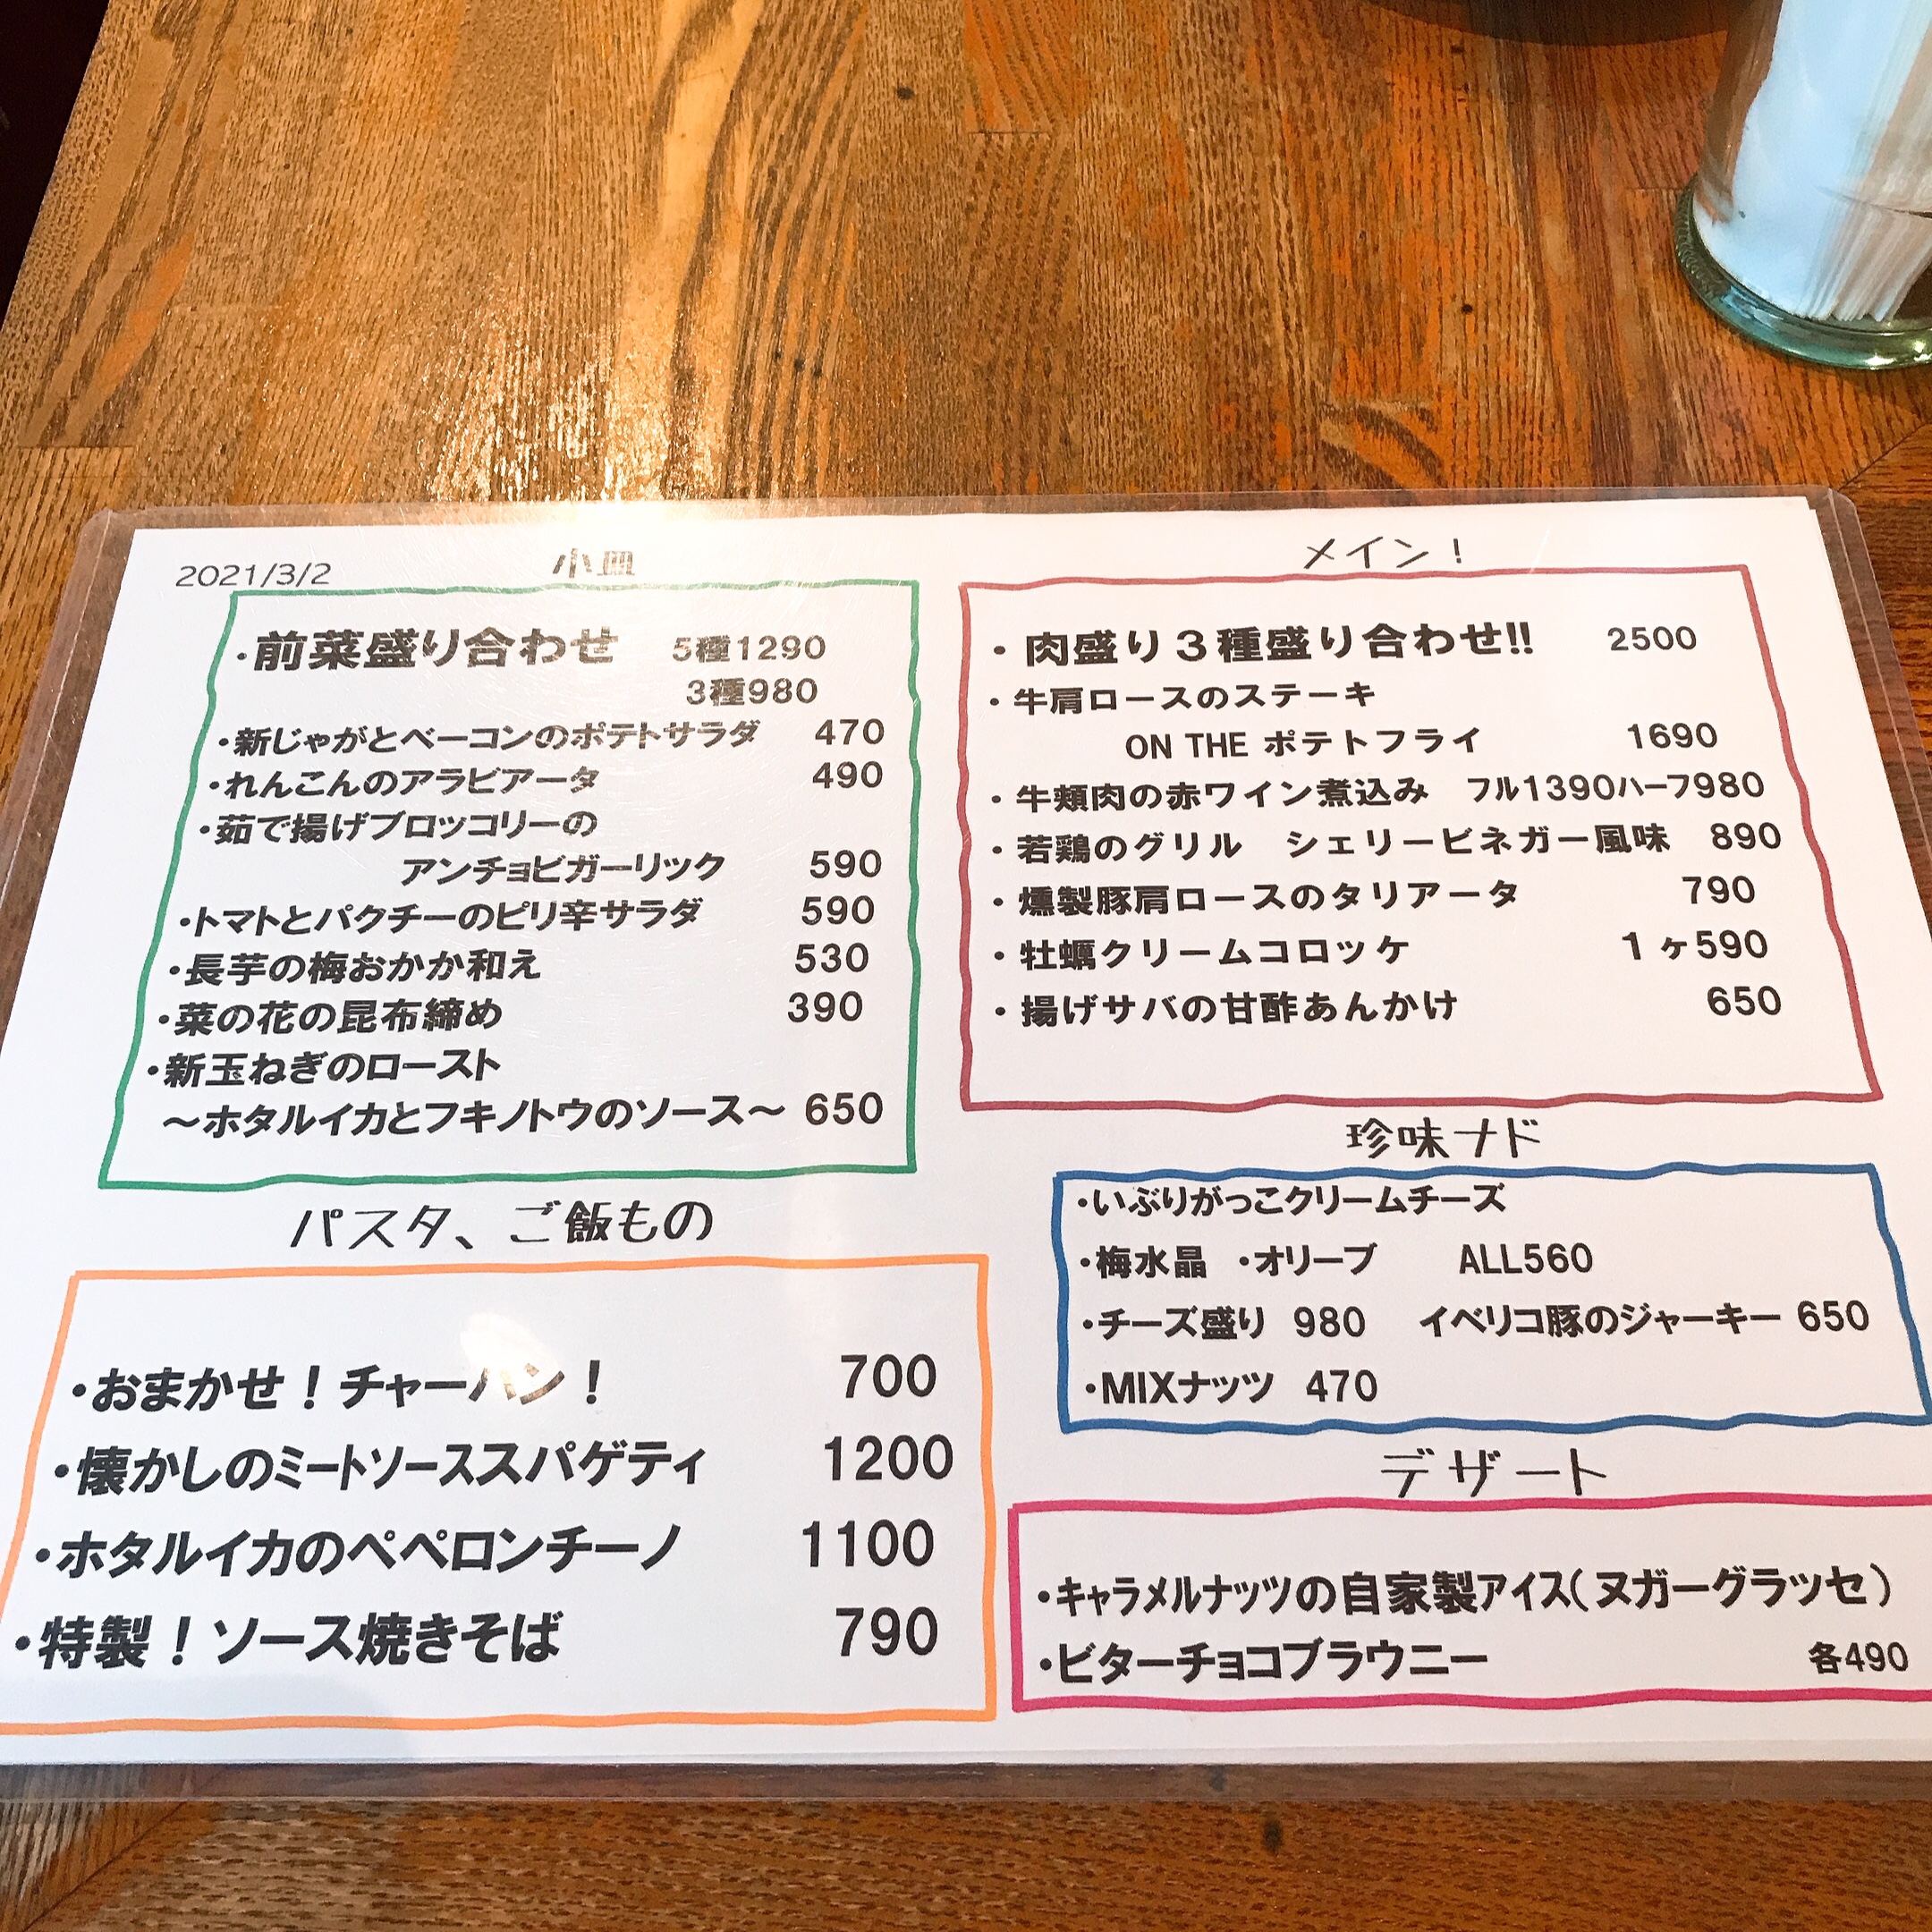 2021/3/2
小皿
・前菜盛り合わせ 5種1290
3種980
・新じゃがとベーコンのポテトサラダ 470
・れんこんのアラビアータ 490
・茹で揚げブロッコリーの
アンチョビガーリック 590
・トマトとパクチーのピリ辛サラダ 590
・長芋の梅おかか和え 530
・菜の花の昆布締め 390
・新玉ねぎのロースト
～ホタルイカとフキノトウのソース～ 650
パスタ、ご飯もの
・おまかせ！チャーハン！ 700
・懐かしのミートソーススパゲティ 1200
・ホタルイカのペペロンチーノ 1100
・特製！ソース焼きそば 790
メイン！
・肉盛り３種盛り合わせ!! 2500
・牛肩ロースのステーキ
ON THE ポテトフライ 1690
・牛頬肉の赤ワイン煮込み フル1390ハーフ980
・若鶏のグリル シェリービネガー風味 890
・燻製豚肩ロースのタリアータ 790
・牡蠣クリームコロッケ 1ヶ590
・揚げサバの甘酢あんかけ 650
珍味ナド
・いぶりがっこクリームチーズ
・梅水晶 ・オリーブ ALL560
・チーズ盛り 980 イベリコ豚のジャーキー 650
・MIXナッツ 470
デザート
・キャラメルナッツの自家製アイス(ヌガーグラッセ)
・ビターチョコブラウニー 各490